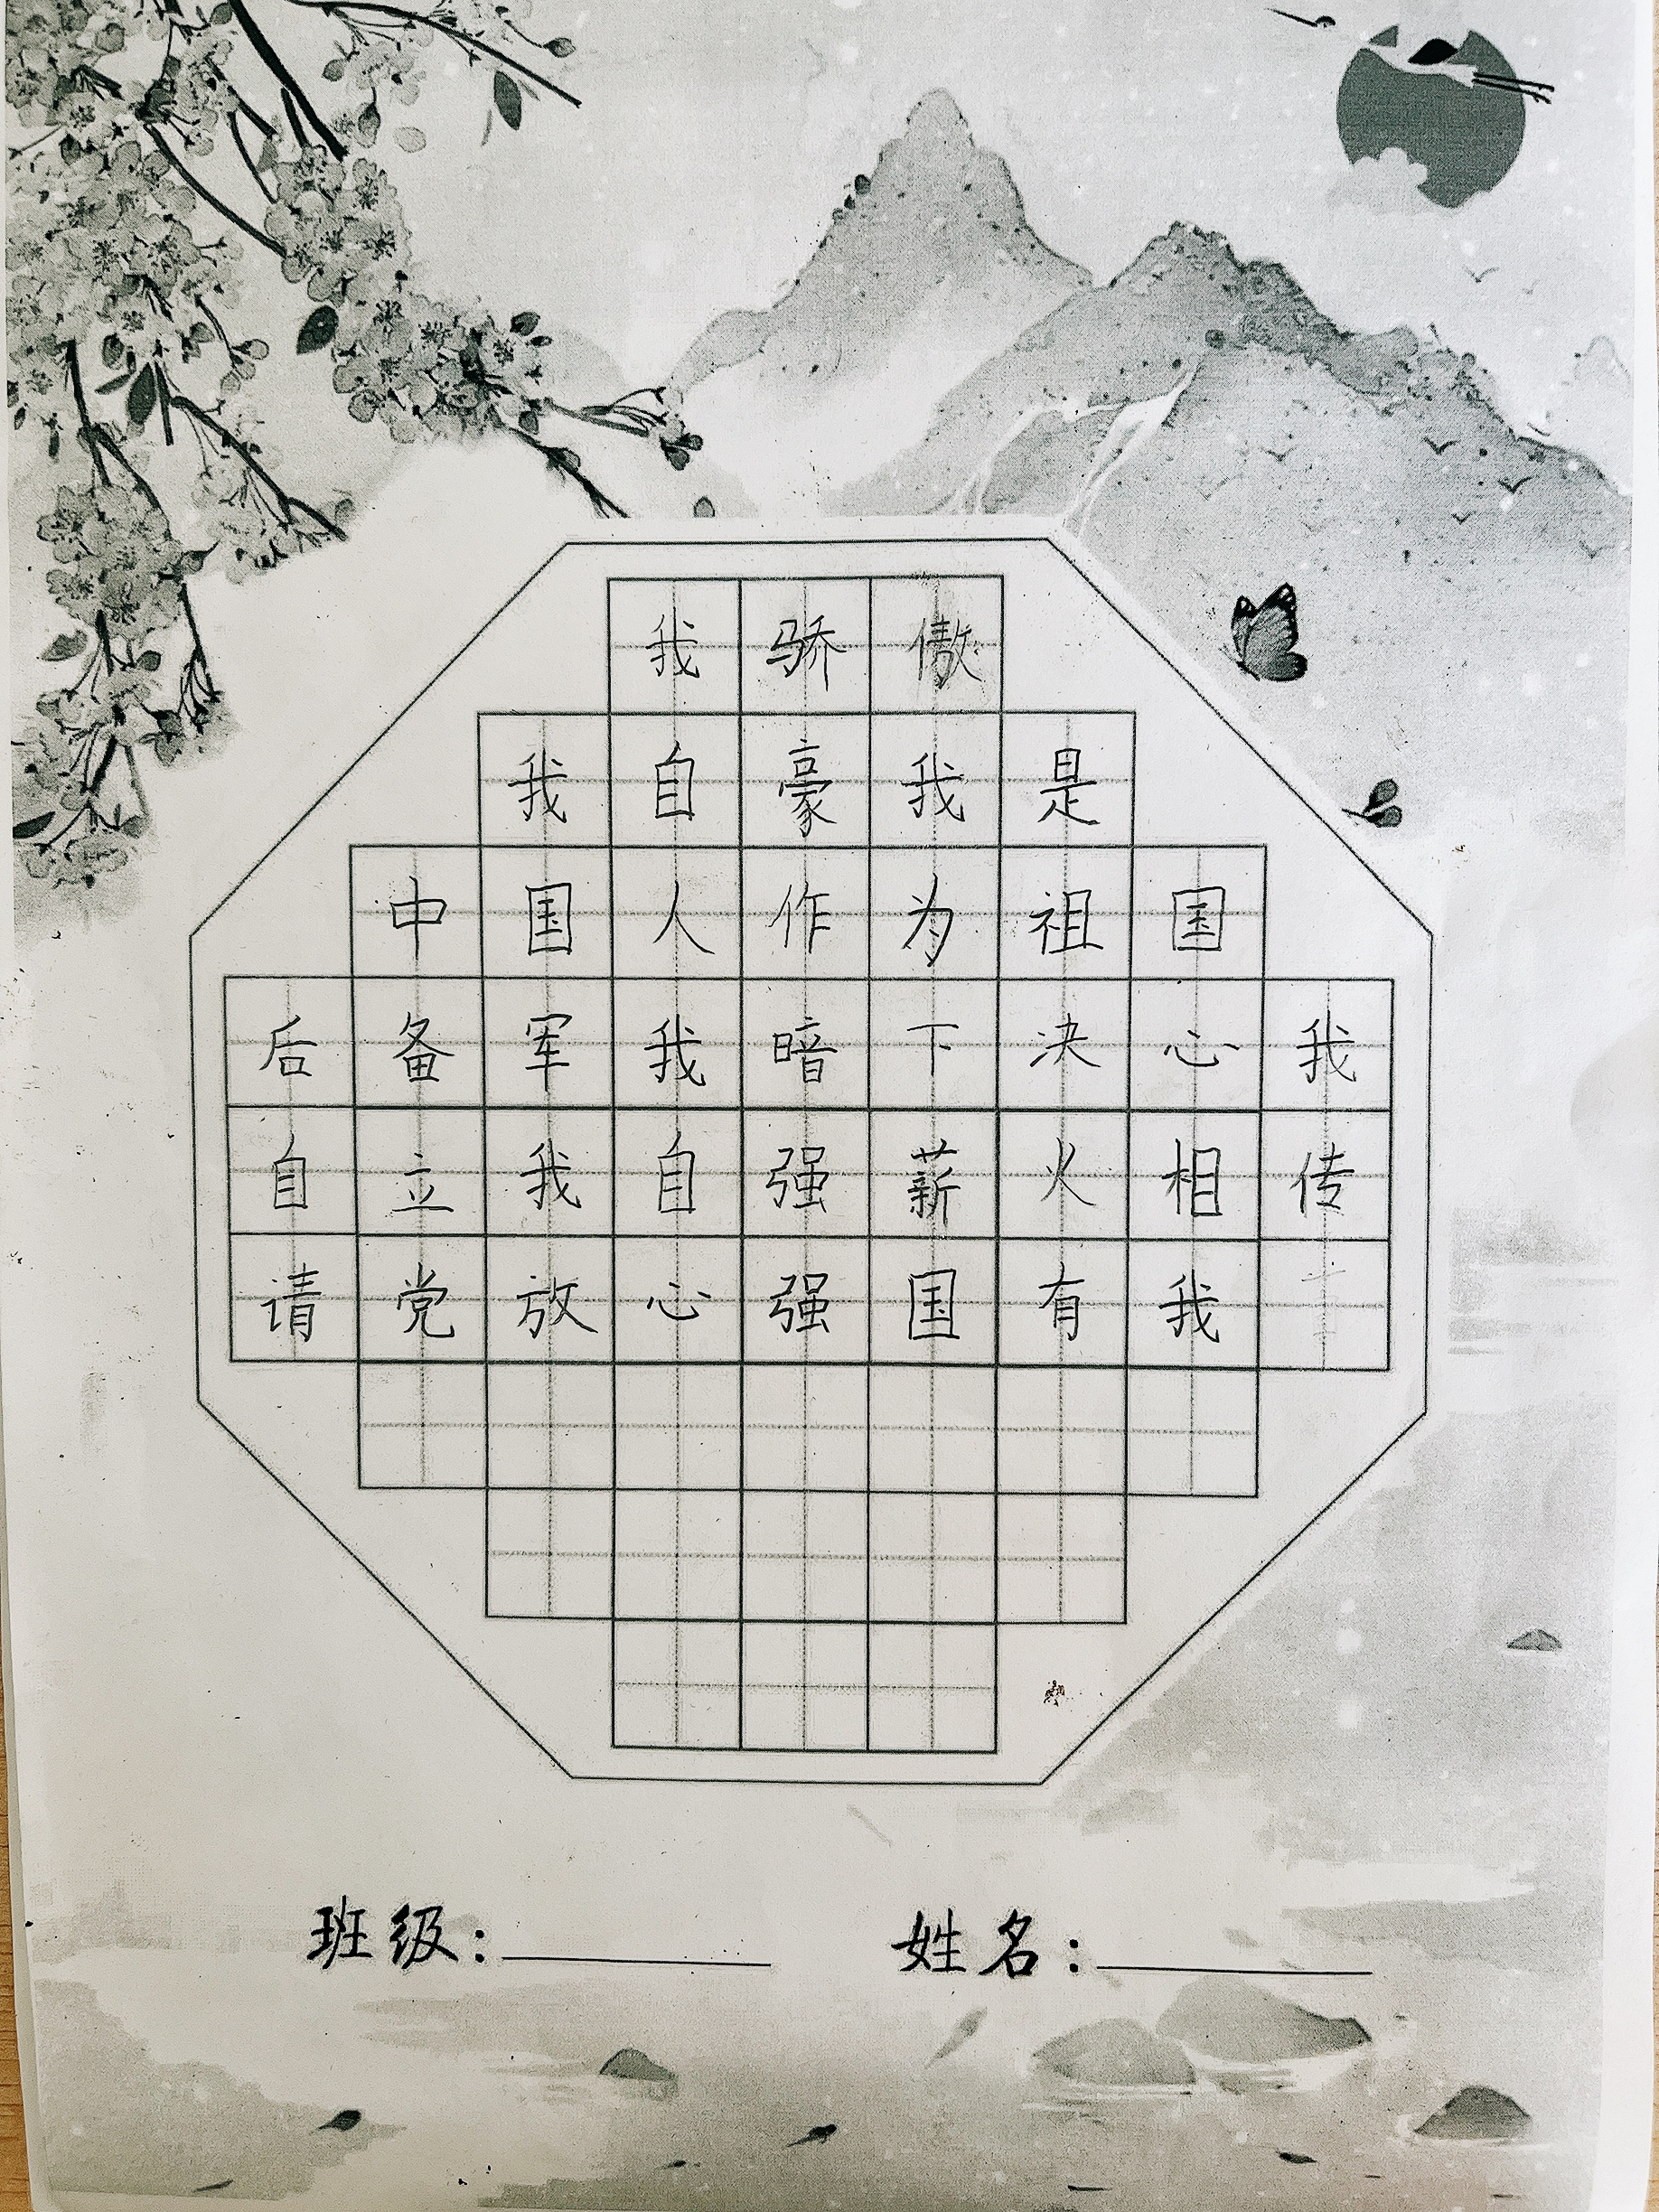 我骄傲
我自豪我是
中国人作为祖国
后备军我暗下决心我
自立我自强薪火相传
请党放心强国有我
班级: 姓名: